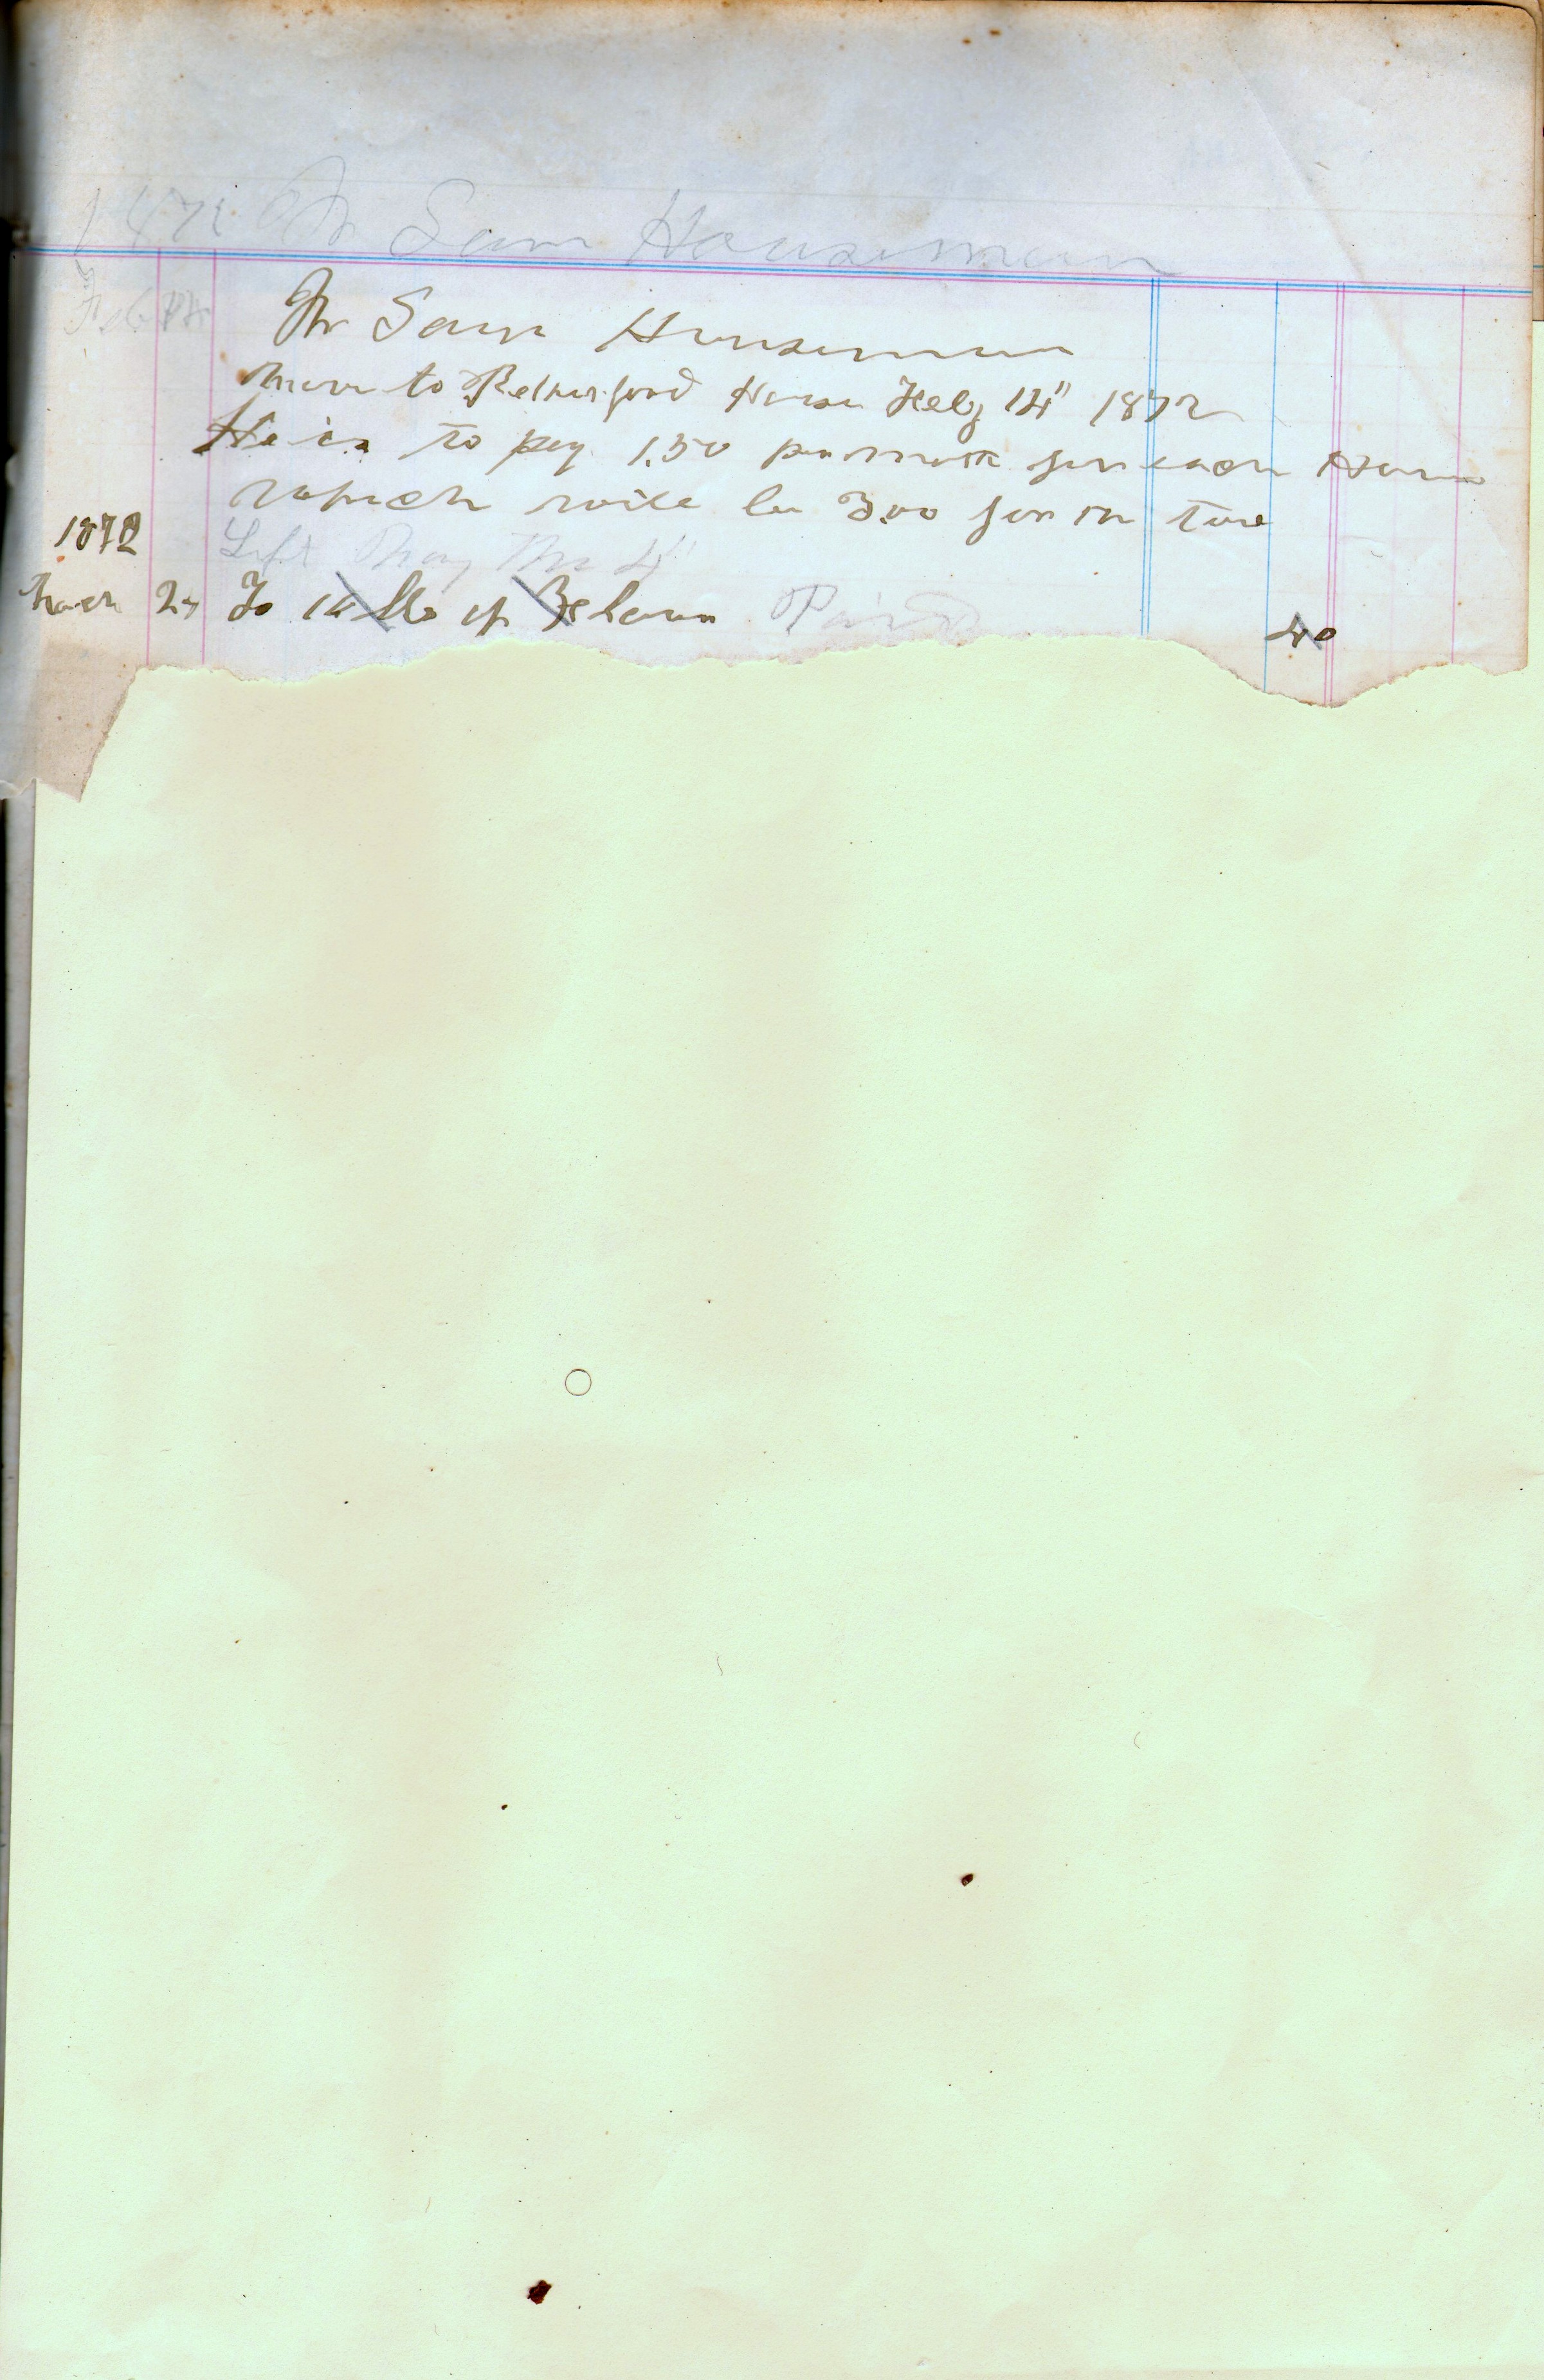 1872 Mr Sam Houseman
Feb 14
Mr Sam Houseman
Move to Retherford House Feby 14" 1872
He is to pay 1.50 per month for each House
which will be 3.00 for the two
1872
Left May the 4"
March 27 To lbs of Paid 40